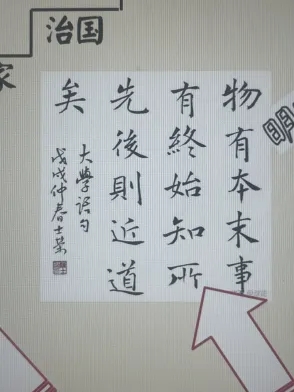 治国
家
明
物有本末事
有終始知所
先後則近道
矣
大學語句
戊戌仲春士榮